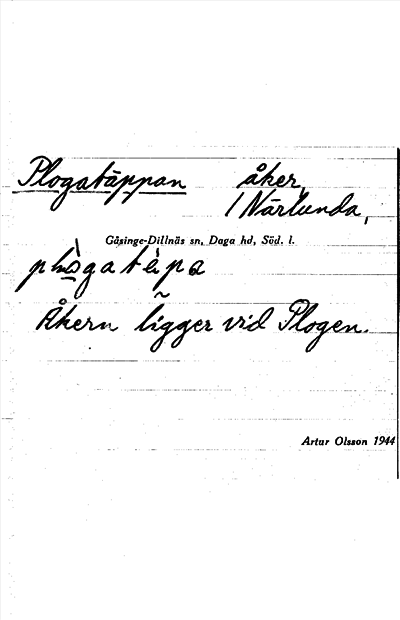 Plogatäppan åker,
i Närlunda,
Gåsinge-Dillnäs sn, Daga hd, Söd. l.
Åkern ligger vid Plogen.
Artur Olsson 1944